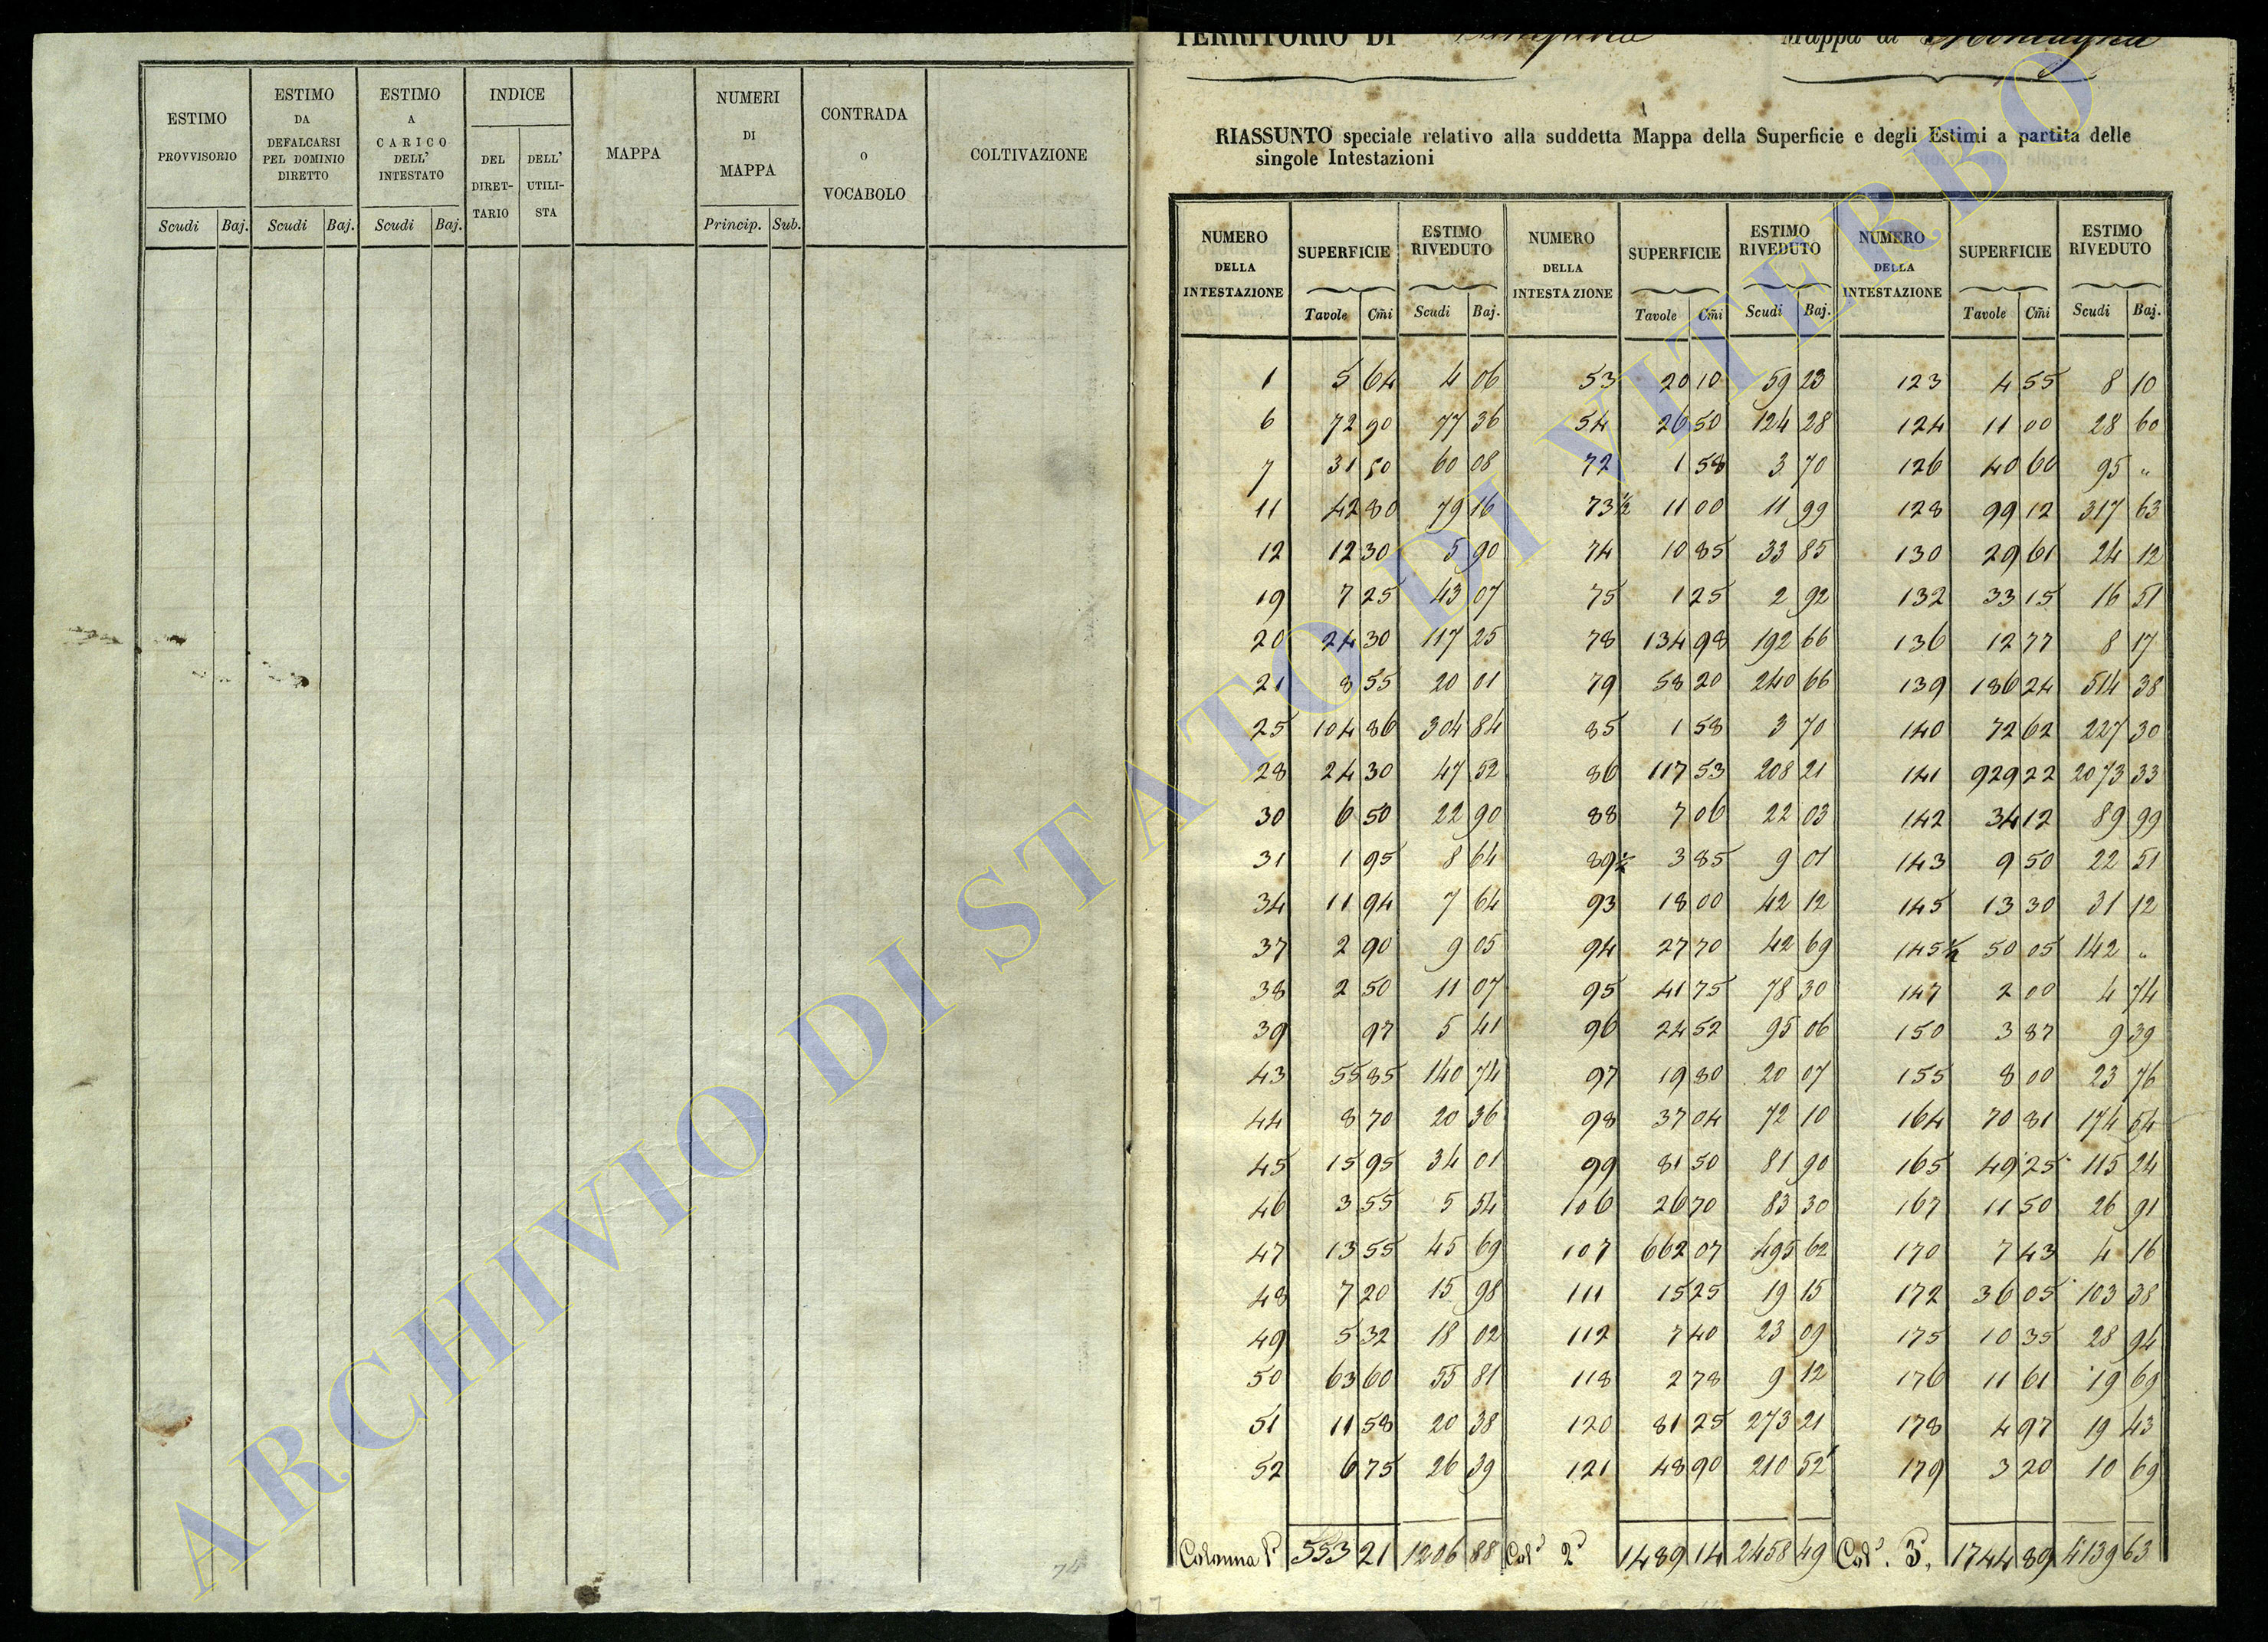 ESTIMO PROVVISORIO Scudi Baj.
ESTIMO DA DEFALCARSI PEL DOMINIO DIRETTO Scudi Baj.
ESTIMO A CARICO DELL' INTESTATO Scudi Baj.
INDICE DEL DIRET- TARIO DELL' UTILI- STA
MAPPA
NUMERI DI MAPPA Princip. Sub.
CONTRADA o VOCABOLO
COLTIVAZIONE
74
TERRITORIO DI Mappa di Montagna
RIASSUNTO speciale relativo alla suddetta Mappa della Superficie e degli Estimi a partita delle
singole Intestazioni
NUMERO DELLA INTESTAZIONE SUPERFICIE ESTIMO RIVEDUTO NUMERO DELLA INTESTAZIONE SUPERFICIE ESTIMO RIVEDUTO NUMERO DELLA INTESTAZIONE SUPERFICIE ESTIMO RIVEDUTO
Tavole Cm̃i Scudi Baj. Tavole Cm̃i Scudi Baj. Tavole Cm̃i Scudi Baj.
1 5 64 4 06 53 20 10 59 23 123 4 55 8 10
6 72 90 77 36 54 26 50 124 28 124 11 00 28 60
7 31 50 60 08 72 1 58 3 70 126 40 60 95 "
11 42 80 79 16 73½ 11 00 11 99 128 99 12 317 63
12 12 30 5 90 74 10 85 33 85 130 29 61 24 12
19 7 25 43 07 75 1 25 2 92 132 33 15 16 51
20 24 30 117 25 78 134 98 192 66 136 12 77 8 17
21 8 55 20 01 79 58 20 240 66 139 186 24 514 38
25 104 86 304 84 85 1 58 3 70 140 72 62 227 30
28 24 30 47 52 86 117 53 208 21 141 929 22 2073 33
30 6 50 22 90 88 7 06 22 03 142 34 12 89 99
31 1 95 8 64 89½ 3 85 9 01 143 9 50 22 51
34 11 94 7 64 93 18 00 42 12 145 13 30 31 12
37 2 90 9 05 94 27 70 42 69 145½ 50 05 142 "
38 2 50 11 07 95 41 75 78 30 147 2 00 4 74
39 97 5 41 96 24 52 95 06 150 3 87 9 39
43 55 85 140 74 97 19 80 20 07 155 8 00 23 76
44 8 70 20 36 98 37 04 72 10 164 70 81 174 54
45 15 95 34 01 99 81 50 81 90 165 49 25 115 24
46 3 55 5 54 106 26 70 83 30 167 11 50 26 91
47 13 55 45 69 107 662 07 495 62 170 7 43 4 16
48 7 20 15 98 111 15 25 19 15 172 36 05 103 38
49 5 32 18 02 112 7 40 23 09 175 10 35 28 94
50 63 60 55 81 118 2 78 9 12 176 11 61 19 69
51 11 58 20 38 120 81 25 273 21 178 4 97 19 43
52 6 75 26 39 121 48 90 210 52 179 3 20 10 69
Colonna 1ª 553 21 1206 88 Colª 2ª 1489 14 2458 49 Colª. 3ª 1744 89 4139 63
ARCHIVIO DI STATO DI VITERBO